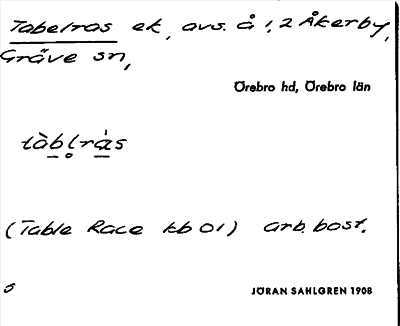 Tabelras ek, avs. å 1, 2 Åkerby,
Gräve sn,
Örebro hd, Örebro län
tàb̥lrȧs
(Table Race kb 01) arb. bost.
s
JÖRAN SAHLGREN 1908